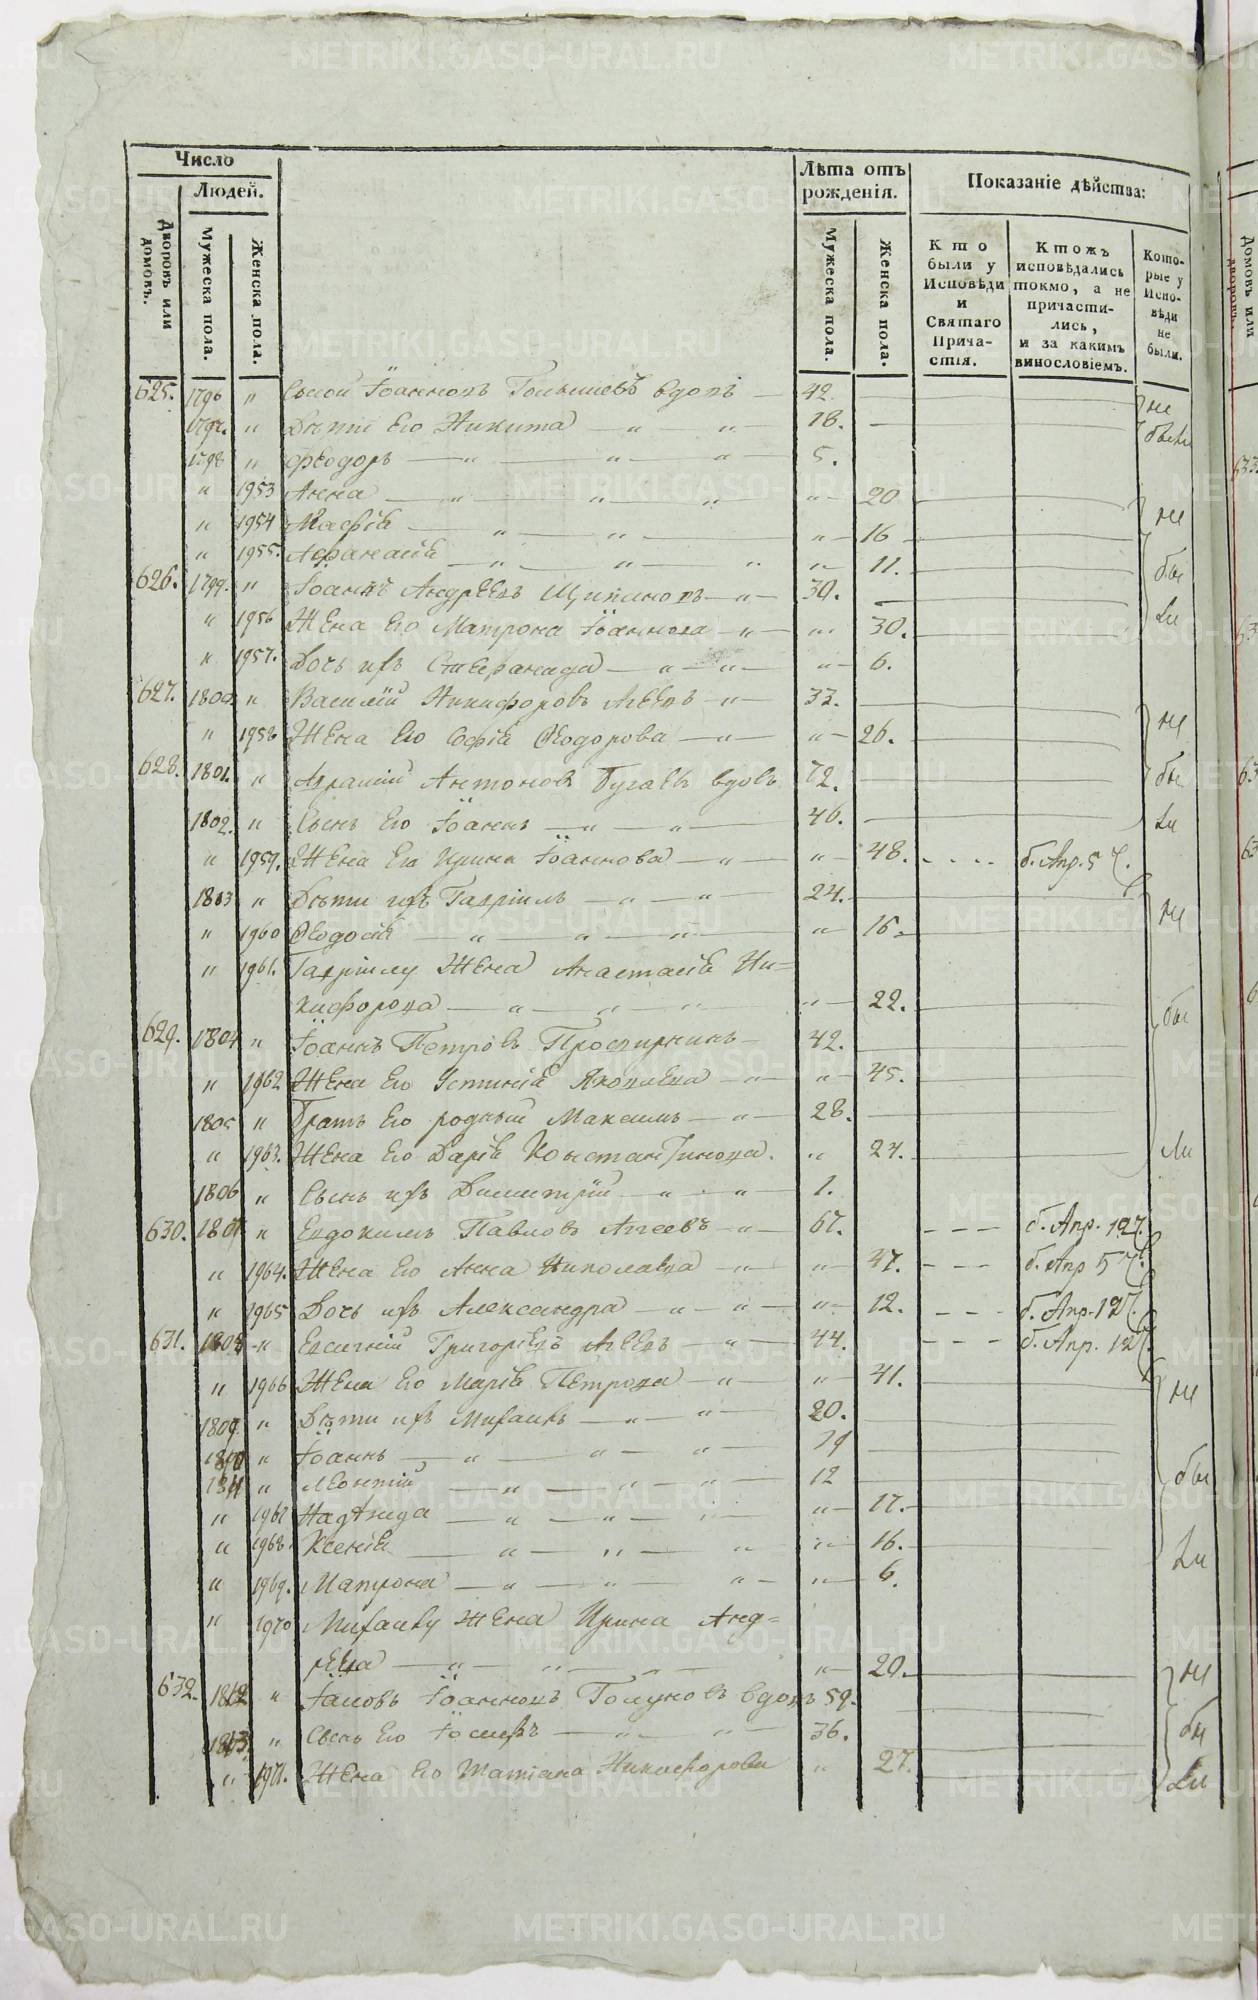 Число
Людей.
Дворовъ или домовъ.
Мужеска пола.
Женска пола.
Лѣта отъ рожденія.
Мужеска пола.
Женска пола.
Показаніе дѣйства:
Кто были у Исповѣди и Святаго Причастія.
Ктожъ исповѣдались токмо, а не причастились, и за какимъ винословіемъ.
Которые у Исповѣди не были.
625. 1796 " Іоанновъ вдовъ — 42. не
1797. " Дѣти его Никита — " — " 18. — были
1798 " Ѳеодоръ — " — " — " 5.
" 1953 Анна — " — " — " "— 20
" 1954 Марія — " — " — "— 16 не
" 1955. Афанасія — " — " " "— 11.
626. 1799. " Іоаннъ Андреевъ — "— 30. бы
" 1956 Жена его Матрона Іоаннова — "— " 30. ли
" 1957. Дочь ихъ Степанида — "— "— "— 6.
627. 1800 " Василій Никифоровъ Агеевъ — "— 33.
" 1958 Жена его Софія Ѳеодорова — "— "— 26. не
628. 1801. " Антоновъ Бугаевъ вдовъ 72. бы
1802. " Сынъ его Іоаннъ — "— "— 46. ли
" 1959. Жена его Ирина Іоаннова — "— "— 48. б. Апр. 5 ч.
1803 " Дѣти ихъ Гавріилъ — "— "— 24. не
" 1960 Ѳеодосія — "— "— "— "— 16.
" 1961. Гавріилу жена Анастасія Ни=
кифорова — "— "— " "— 22. бы
629. 1804 " Іоаннъ Петровъ Просвирнинъ — 42.
" 1962 Жена его Устинія Яковлева — "— "— 45.
1805 " Братъ его родный Максимъ — "— 28.
" 1963. Жена его Дарія Константинова. " 27. ли
1806 " Сынъ ихъ Димитрій — "— "— 1.
630. 1807 " Евдокимъ Павловъ Агеевъ — "— 67. б. Апр. 12 ч.
" 1964. Жена его Анна Николаева — "— "— 47. б. Апр 5 ч.
" 1965 Дочь ихъ Александра — "— "— "— 12. б. Апр. 12 ч.
631. 1808 " Григорьевъ Агеевъ — "— 44. б. Апр. 12 ч.
" 1966 Жена его Марія Петрова — "— "— 41. не
1809 " Дѣти ихъ Михаилъ — "— "— 20.
1810 " Іоаннъ — "— "— "— 19
1811 " Леонтій — "— "— "— 12 бы
" 1967 Надежда — "— "— " "— 17.
" 1968 Ксенія — "— "— " "— 16. ли
" 1969. Матрона — "— "— "— "— 6.
" 1970 Михаилу жена Ирина Анд=
реева — "— "— "— 20. не
632. 1812 " Іаковъ Іоанновъ Голуновъ вдовъ 59.
1813. " Сынъ его Іосифъ — "— "— 36. бы
" 1971. Жена его Татіана Никифорова " 27. ли
METRIKI.GASO-URAL.RU